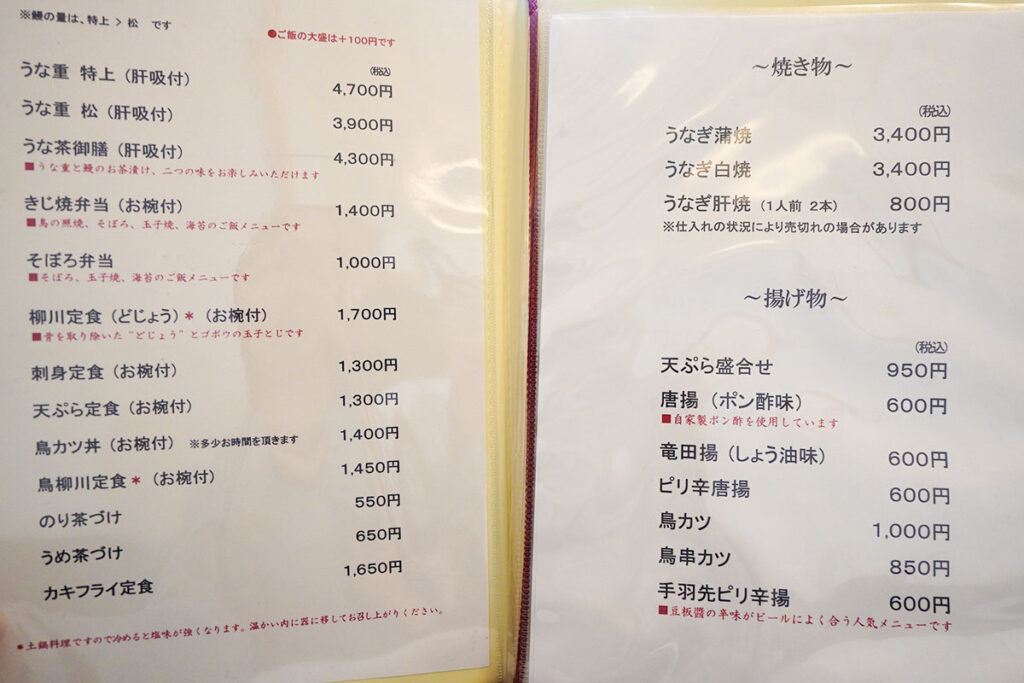 ※鰻の量は、特上 > 松 です
●ご飯の大盛は+100円です
(税込)
うな重 特上（肝吸付） 4,700円
うな重 松（肝吸付） 3,900円
うな茶御膳（肝吸付） 4,300円
■うな重と鰻のお茶漬け、二つの味をお楽しみいただけます
きじ焼弁当（お椀付） 1,400円
■鳥の照焼、そぼろ、玉子焼、海苔のご飯メニューです
そぼろ弁当 1,000円
■そぼろ、玉子焼、海苔のご飯メニューです
柳川定食（どじょう）*（お椀付） 1,700円
■骨を取り除いた“どじょう”とゴボウの玉子とじです
刺身定食（お椀付） 1,300円
天ぷら定食（お椀付） 1,300円
鳥カツ丼（お椀付） ※多少お時間を頂きます 1,400円
鳥柳川定食*（お椀付） 1,450円
のり茶づけ 550円
うめ茶づけ 650円
カキフライ定食 1,650円
*土鍋料理ですので冷めると塩味が強くなります。温かい内に器に移してお召し上がりください。
～焼き物～
(税込)
うなぎ蒲焼 3,400円
うなぎ白焼 3,400円
うなぎ肝焼（1人前 2本） 800円
※仕入れの状況により売切れの場合があります
～揚げ物～
(税込)
天ぷら盛合せ 950円
唐揚（ポン酢味） 600円
■自家製ポン酢を使用しています
竜田揚（しょう油味） 600円
ピリ辛唐揚 600円
鳥カツ 1,000円
鳥串カツ 850円
手羽先ピリ辛揚 600円
■豆板醤の辛味がビールによく合う人気メニューです